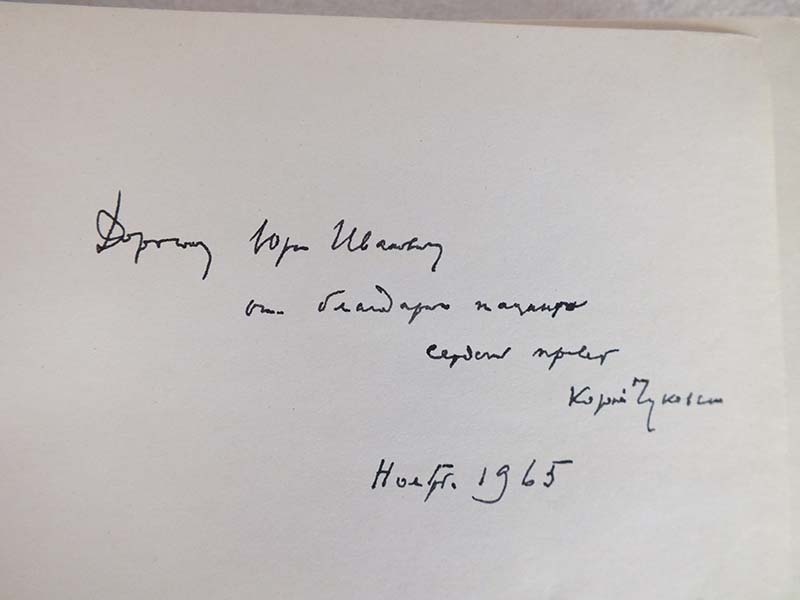 Дорогому Юрию Ивановичу
от благодарного пациента
сердечный привет
Корней Чуковский
Ноябрь. 1965